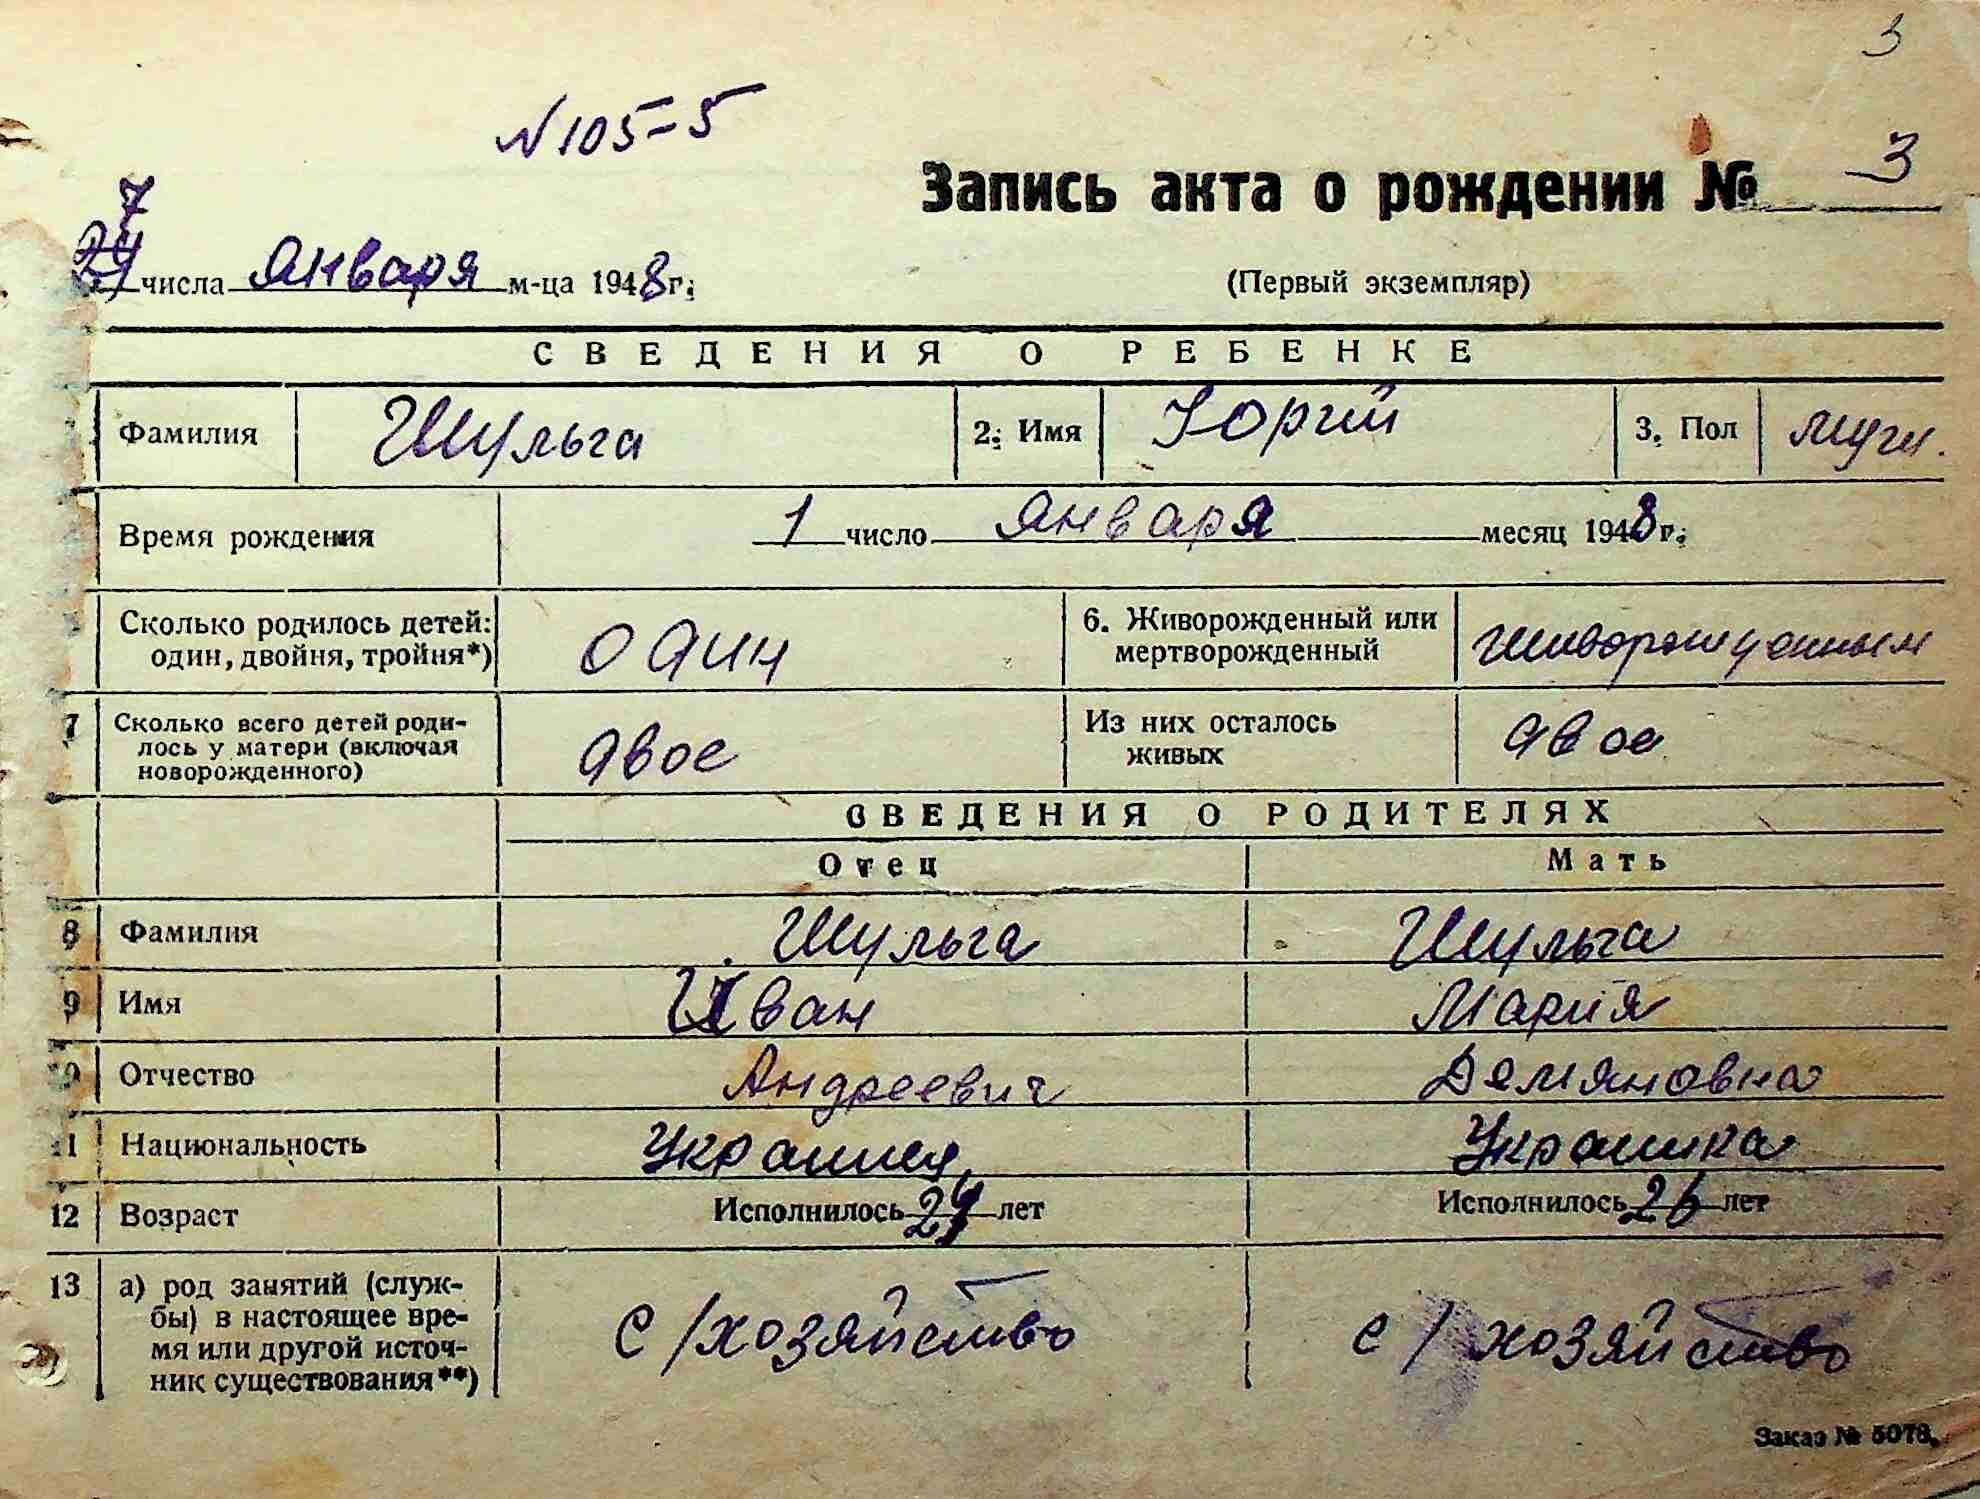 3
N 105-5
Запись акта о рождении № 3
7
числа января м-ца 1948 г.
(Первый экземпляр)
СВЕДЕНИЯ О РЕБЕНКЕ
Фамилия Шульга 2. Имя Юрий 3. Пол муж.
Время рождения 1 число января месяц 1948 г.
Сколько родилось детей: один, двойня, тройня*) один 6. Живорожденный или мертворожденный живорожденным
7 Сколько всего детей роди-
лось у матери (включая
новорожденного) двое Из них осталось живых двое
СВЕДЕНИЯ О РОДИТЕЛЯХ
Отец Мать
8 Фамилия Шульга Шульга
9 Имя Иван Мария
10 Отчество Андреевич Демяновна
11 Национальность Украинец Украинка
12 Возраст Исполнилось лет Исполнилось 26 лет
13 а) род занятий (служ-
бы) в настоящее вре-
мя или другой источ-
ник существования**) с/хозяйство с/хозяйство
Заказ № 5078.